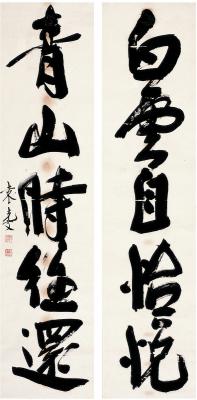 白雲自怡悦
青山時往還
袁